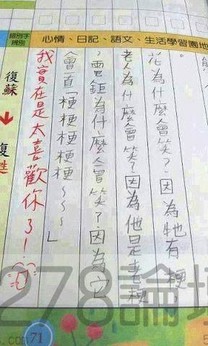 錯別字
辨別
心情、日記、語文、生活學習園地
花為什麼會笑?因為牠有梗
老
為什麼會笑?因為他是
電鋸為什麼會笑?因為它
會一直「梗梗梗梗梗~~~」
我實在是太喜歡你了!
復甦
復
278論壇
71